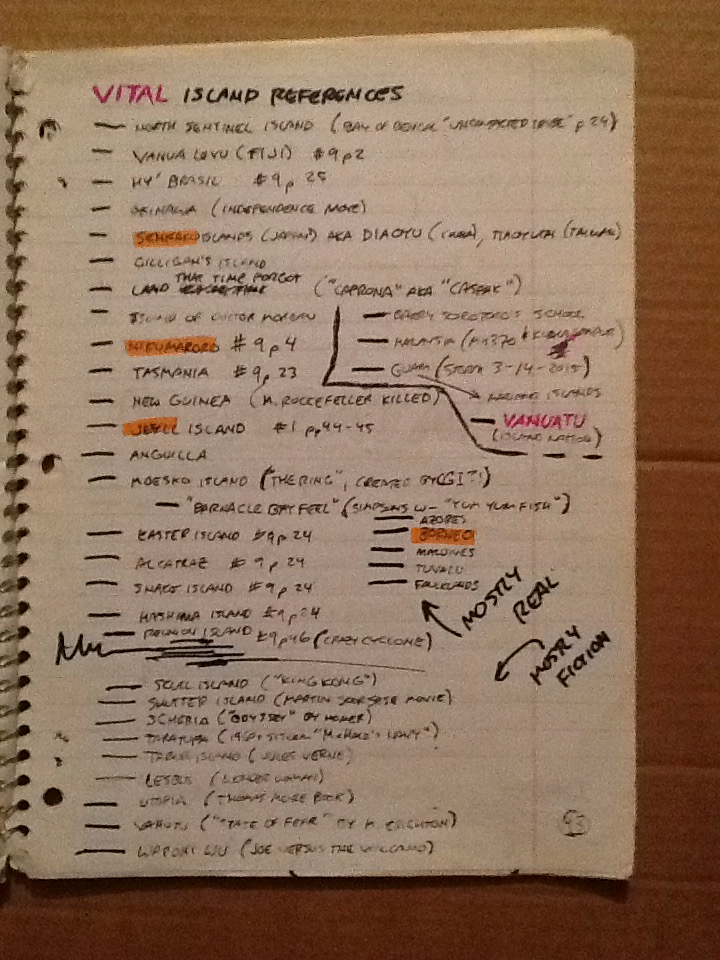 VITAL ISLAND REFERENCES
— NORTH SENTINEL ISLAND (BAY OF BENGAL "UNCONTACTED TRIBE" p 24)
— VANUA LEVU (FIJI) #9 p 2
— HY' BRASIL #9 p 25
— OKINAWA (INDEPENDENCE MOVE)
— SENKAKU ISLANDS (JAPAN) AKA DIAOYU (CHINA), TIAOYUTAI (TAIWAN)
— GILLIGAN'S ISLAND
— LAND THAT TIME FORGOT ("CAPRONA" AKA "CASPAK")
— ISLAND OF DOCTOR MOREAU
— NIKUMARORO #9 p 4
— TASMANIA #9 p. 23
— NEW GUINEA (M. ROCCEFELLER KILLED)
— JEKYLL ISLAND #1 pp 44-45
— ANGUILLA
— MOESKO ISLAND ("THE RING", CREATED BY CGI?!)
— "BARNACLE BAY FEEL" (SIMPSONS W— "YUM YUM FISH")
— EASTER ISLAND #9 p. 24
— ALCATRAZ #9 p. 24
— SNAKE ISLAND #9 p 24
— HASHIMA ISLAND #9 p. 24
— REUNION ISLAND #9 p 46 (CRAZY CYCLONE)
— SCHOOL
— MALAYSIA (MH370
— GUAM (STORM 3-14-2015)
→ MARIANA ISLANDS
— VANUATU
(ISLAND NATION)
— AZORES
— BORNEO
— MALDIVES
— TUVALU
— FALKLANDS
MOSTRY REAL
MOSTRY FICTION
— SKULL ISLAND ("KING KONG")
— SHUTTER ISLAND (MARTIN SCORSESE MOVIE)
— SCHERIA ("ODYSSEY" BY HOMER)
— TARATUPA ("McHALE'S NAVY")
— TABOR ISLAND (JULES VERNE)
— LESBOS (WONDER WOMAN)
— UTOPIA (THOMAS MORE BOOK)
— VANUTU ("STATE OF FEAR" BY M. CRICHTON)
— WAPONI WU (JOE VERSUS THE VOLCANO)
93